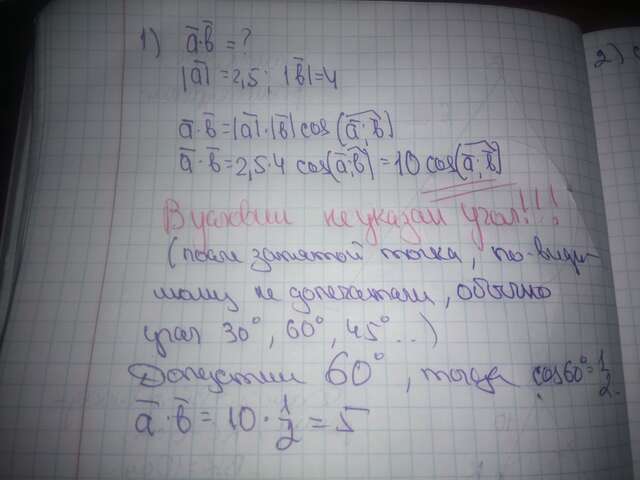 1) a̅·b̅ = ?
|a̅| = 2,5; |b̅| = 4
a̅·b̅ = |a̅|·|b̅| cos(a̅;b̅)
a̅·b̅ = 2,5·4 cos(a̅;b̅) = 10 cos(a̅;b̅)
В условии не указан угол!!!
(после запятой точка, по-види-
мому не допечатали, обычно
угол 30°, 60°, 45°...)
Допустим 60°, тогда cos60°=1/2.
a̅·b̅ = 10·1/2 = 5
2)